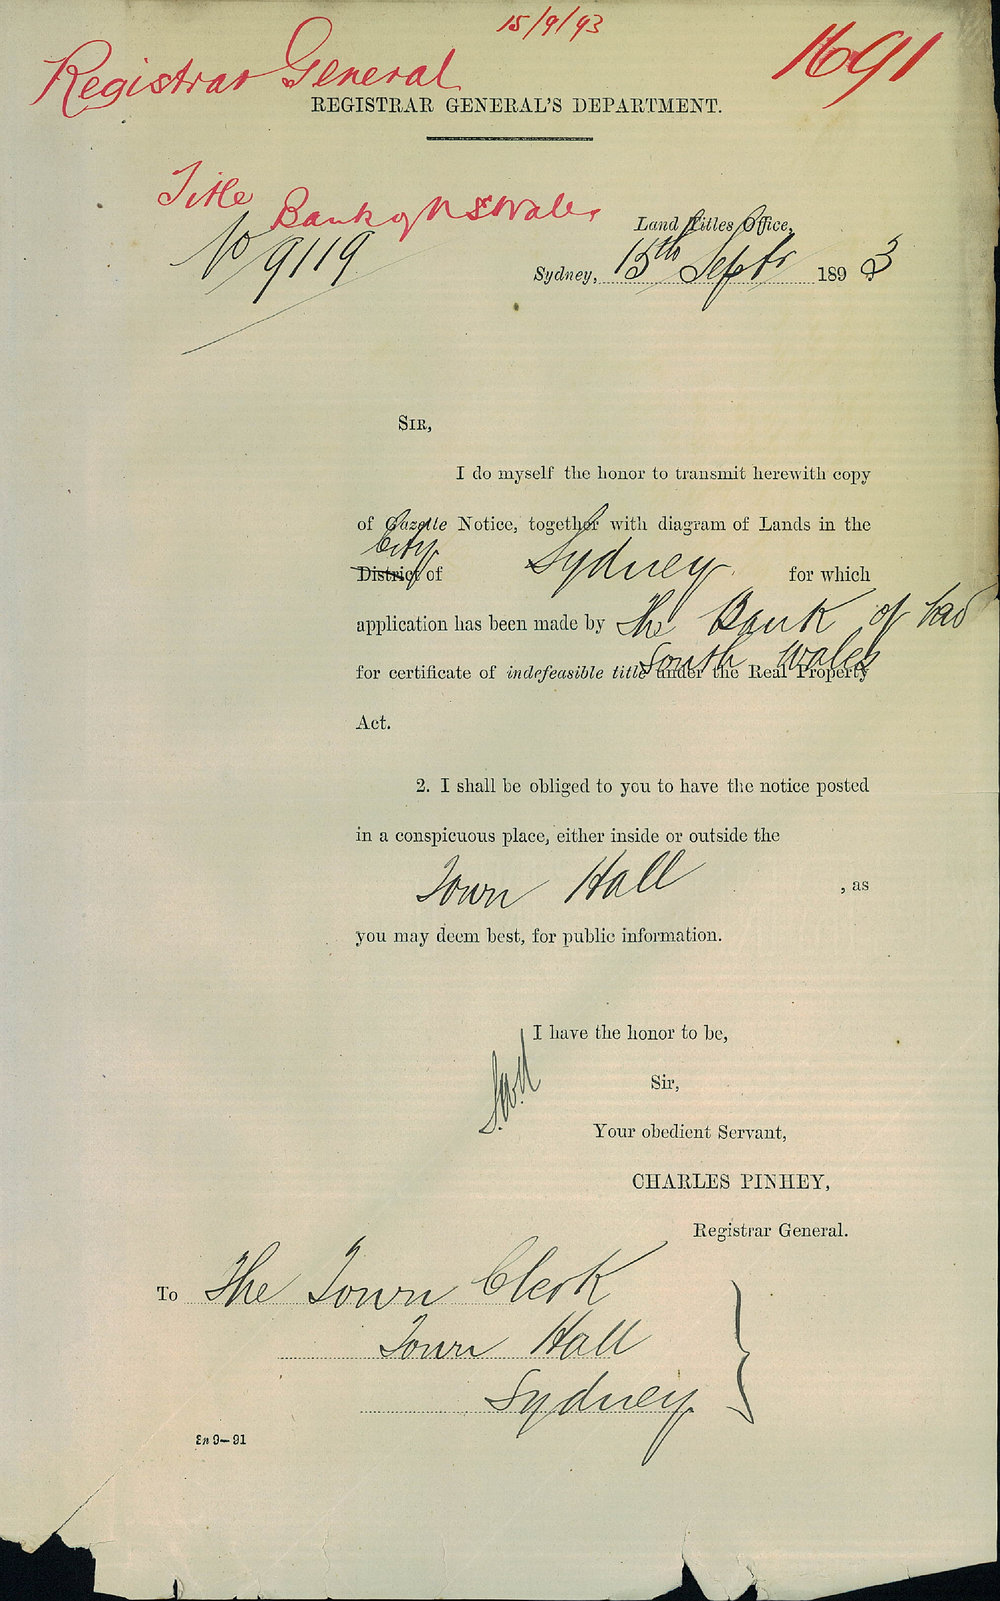 15/9/93
1691
Registrar General
REGISTRAR GENERAL'S DEPARTMENT.
Title Bank of N S Wales
No 9119
Land Titles Office,
Sydney, 15th Septr 1893
SIR,
I do myself the honor to transmit herewith copy
of Gazette Notice, together with diagram of Lands in the
City
District of Sydney for which
application has been made by The Bank of
South Wales
for certificate of indefeasible title under the Real Property
Act.
2. I shall be obliged to you to have the notice posted
in a conspicuous place, either inside or outside the
Town Hall , as
you may deem best, for public information.
I have the honor to be,
Sir,
Your obedient Servant,
CHARLES PINHEY,
Registrar General.
To The Town Clerk
Town Hall
Sydney
9—91